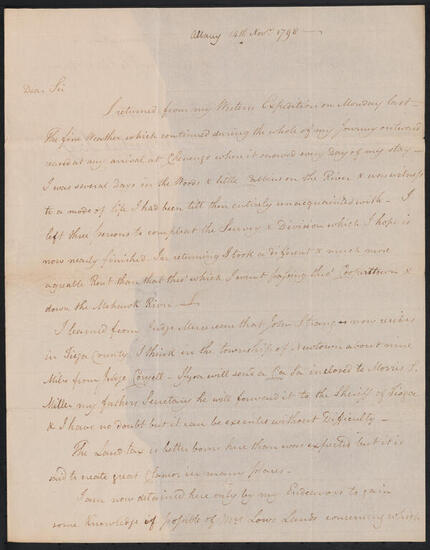 Albany 14th Novr. 1798 —
Dear Sir
I returned from my Western Expedition on Monday last —
The fine Weather which continued during the whole of my Journey outward
ceased at my arrival at Chenengo when it snowed every day of my stay —
I was several days in the Woods & little Cabbins on the River & was witness
to a mode of life I had been till then entirely unacquainted with — I
left three persons to compleat the Survey & Division which I hope is
now nearly finished. In returning I took a different & much more
agreable Rout than that thro' which I went passing thro' Cooperstown &
down the Mohawk River —
I learned from Judge Mersereau that John Strang is now resides
in Tioga County I think in the township of Newtown about nine
Miles from Judge If you will send a Ca Sa inclosed to Morris S.
Miller my fathers Secretary he will forward it to the Sheriff of Tioga
& I have no doubt but it can be executed without Difficulty —
The Land tax is better borne here than was expected but it is
said to create great Clamor in many places —
I am now detained here only by my Endeavors to gain
some Knowledge if possible of Mrs Lows Lands concerning which